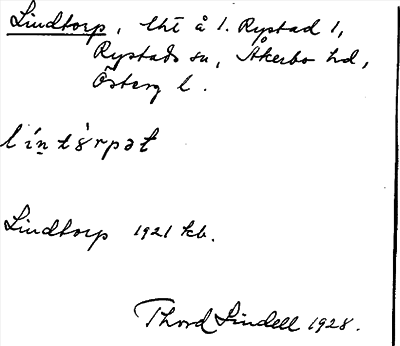 Lindtorp, lht å 1. Rystad 1,
Rystads sn, Åkerbo hd,
Österg l.
líntòrpət
Lindtorp 1921 kb.
Thord Lindell 1928.